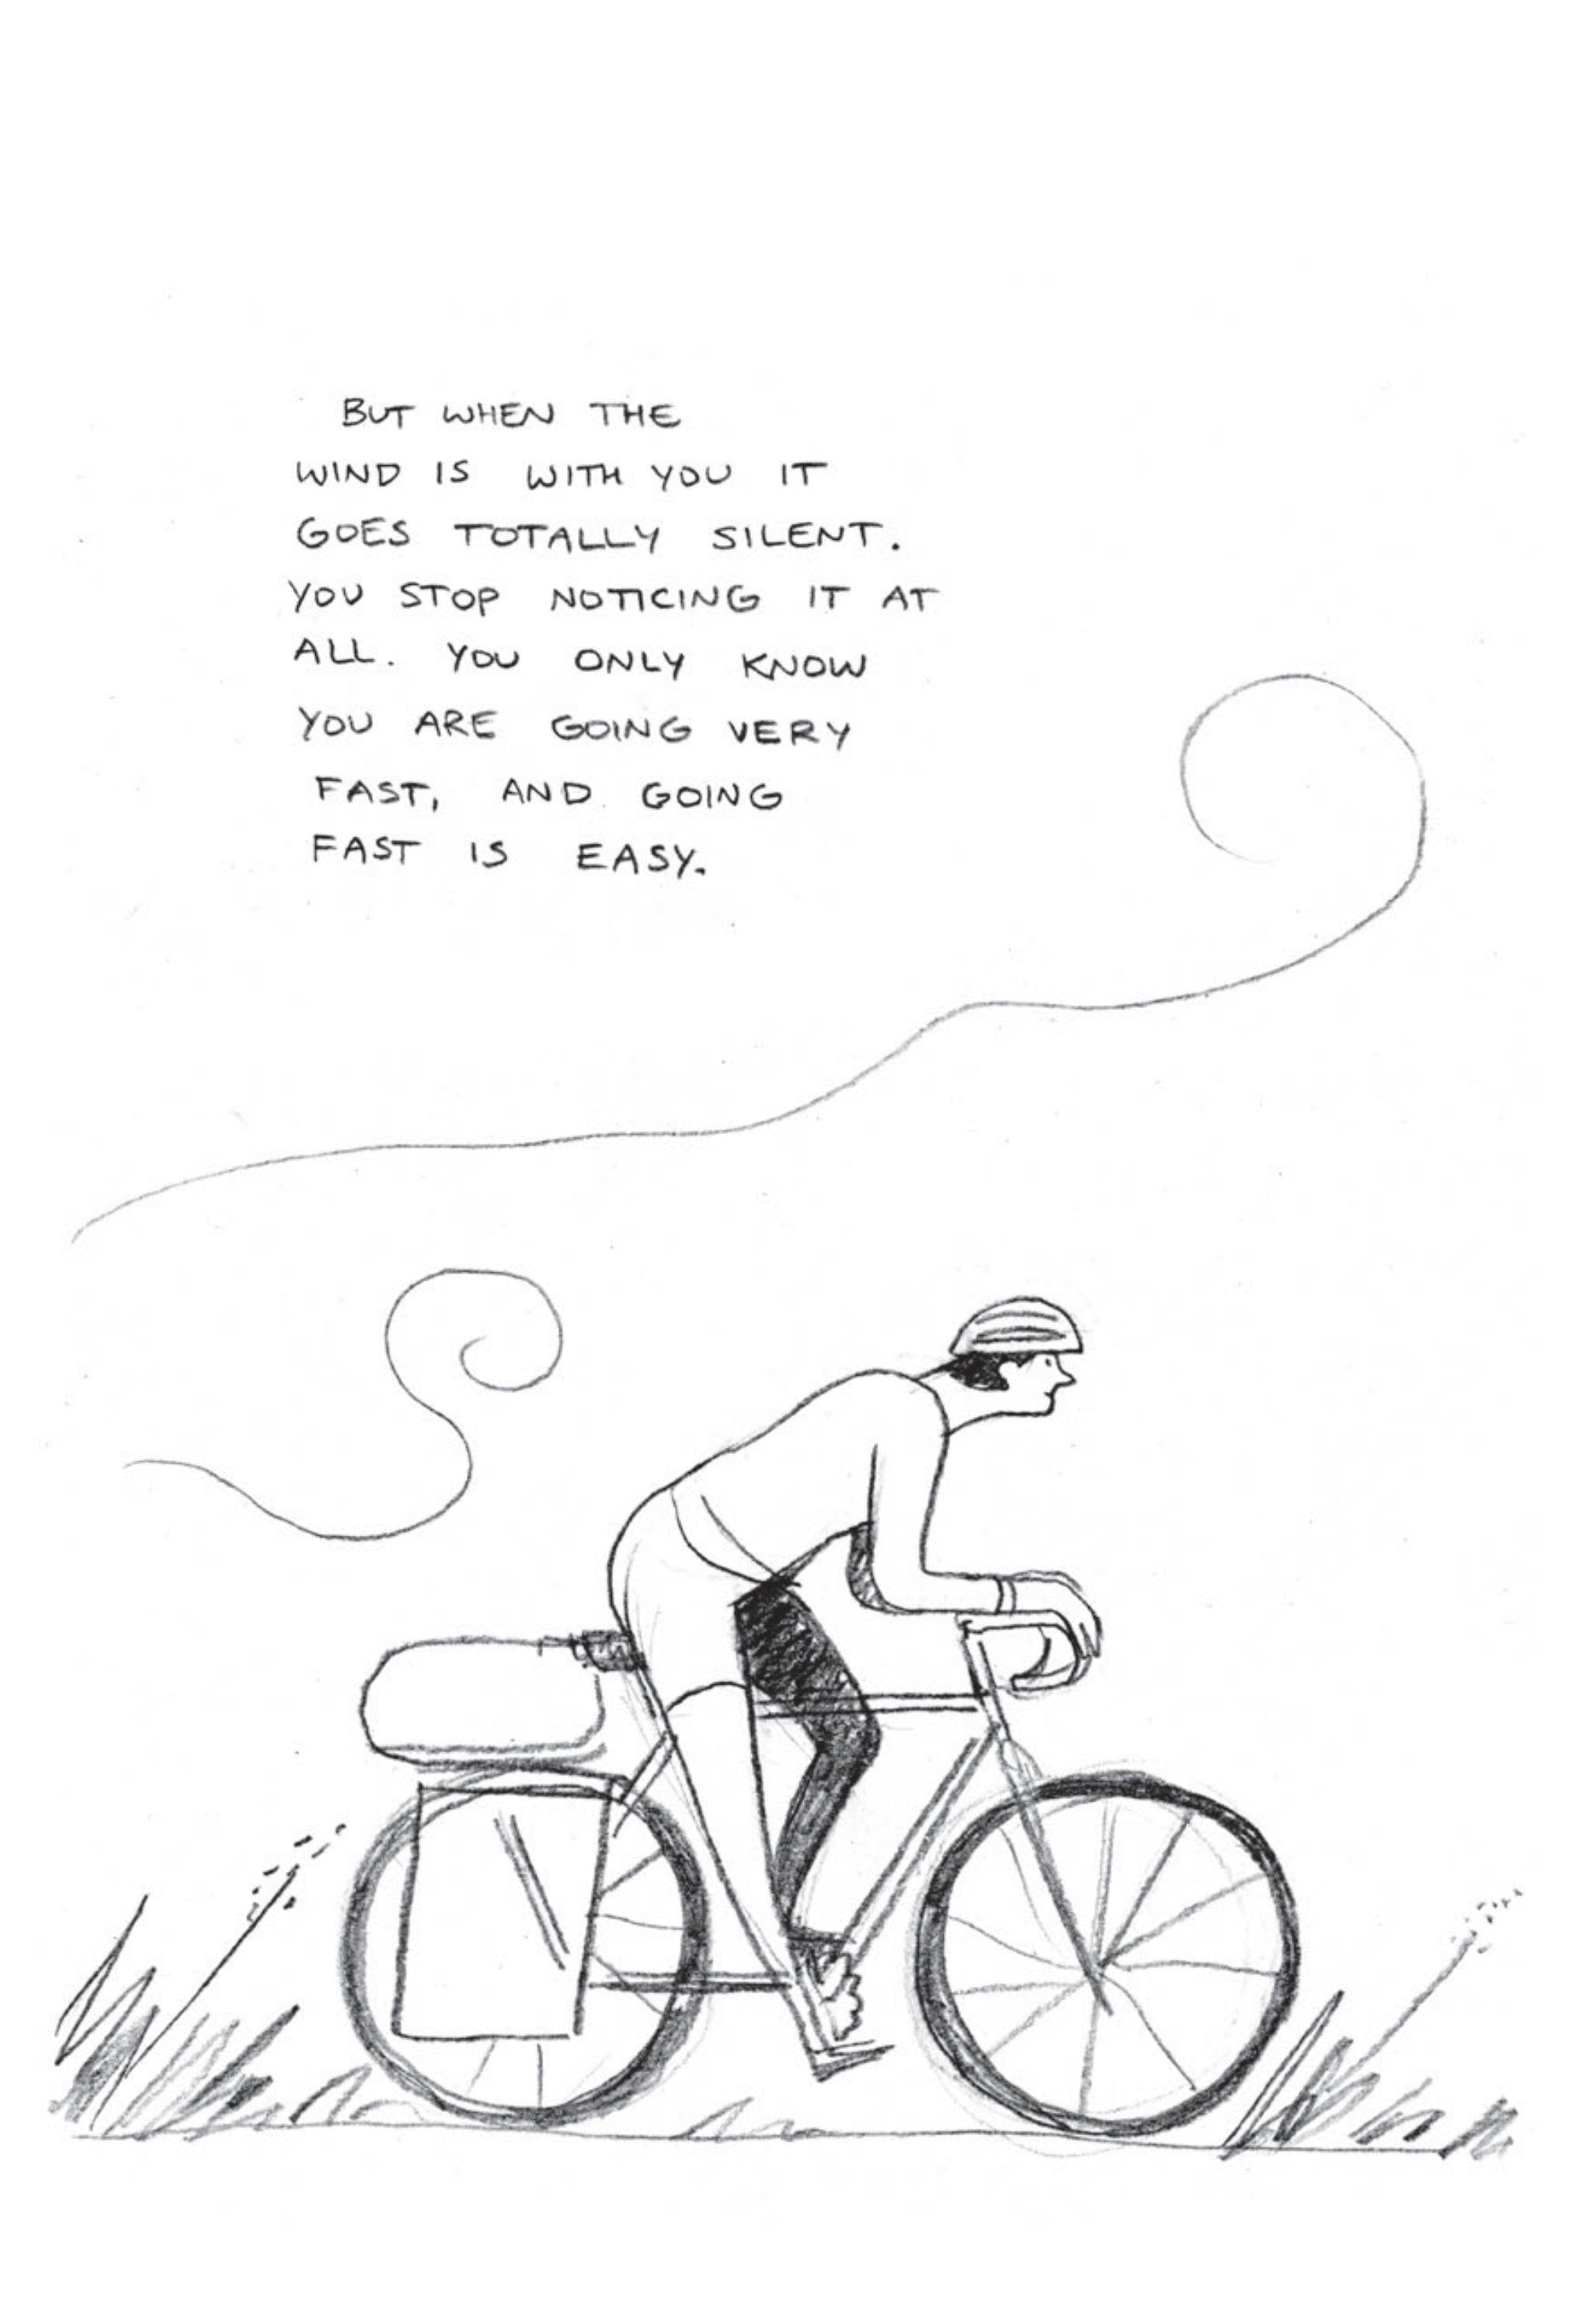 BUT WHEN THE
WIND IS WITH YOU IT
GOES TOTALLY SILENT.
YOU STOP NOTICING IT AT
ALL. YOU ONLY KNOW
YOU ARE GOING VERY
FAST, AND GOING
FAST IS EASY.